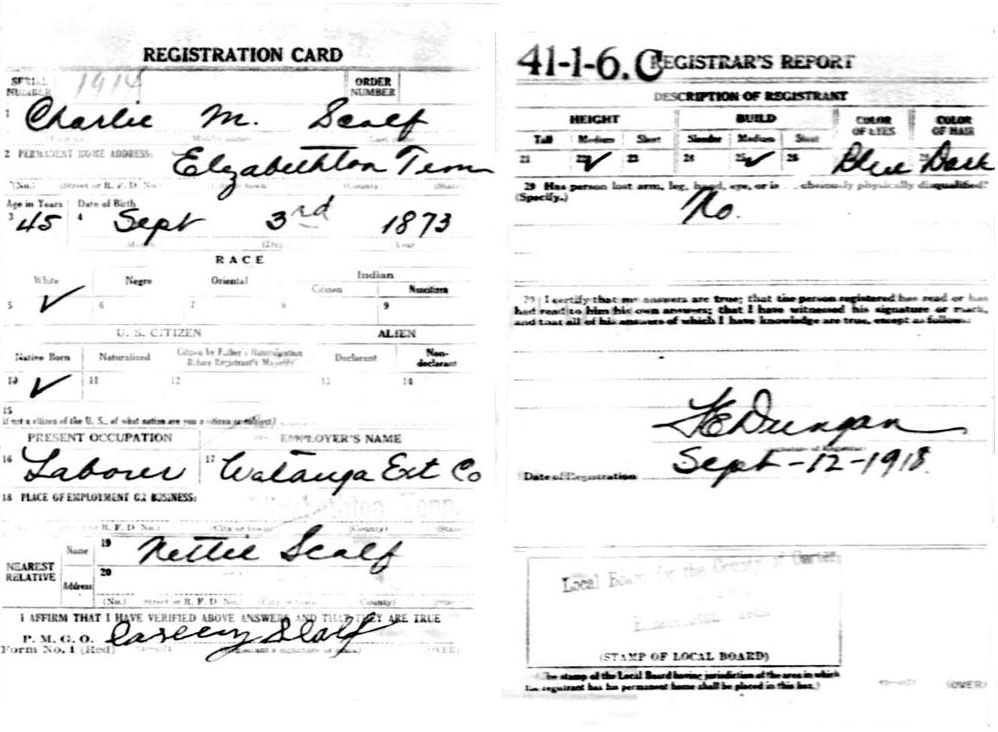 REGISTRATION CARD
SERIAL NUMBER 1914 ORDER NUMBER
1 Charlie M. Scalf
2 PERMANENT HOME ADDRESS:
Elizabethton Tenn
(No.) (Street or R. F. D. No.) (County) (State)
Age in Years Date of Birth
3 45 4 Sept 3rd 1873
(Day) Year
RACE
White Negro Oriental Indian
Citizen Noncitizen
5 ✓ 6 7 8 9
U. S. CITIZEN ALIEN
Native Born Naturalized Citizen by Father's Naturalization Before Registrant's Majority Declarant Non-declarant
10 ✓ 11 12 13 14
15
If not a citizen of the U. S., of what nation are you a citizen or subject?
PRESENT OCCUPATION EMPLOYER'S NAME
16 Laborer 17 Watauga Ext Co
18 PLACE OF EMPLOYMENT OR BUSINESS:
Elizabethton, Tenn.
R. F. D. No.) (City or town) (County) (State)
NEAREST RELATIVE
Name 19 Nettie Scalf
Address 20
(No.) (Street or R. F. D. No.) (City or town) (County) (State)
I AFFIRM THAT I HAVE VERIFIED ABOVE ANSWERS AND THAT THEY ARE TRUE
P. M. G. O.
Form No. 1 (Red) Scalf
(Registrant's signature or mark) (OVER)
41-1-6. C REGISTRAR'S REPORT
DESCRIPTION OF REGISTRANT
HEIGHT BUILD COLOR OF EYES COLOR OF HAIR
Tall Medium Short Slender Medium Stout
21 22 ✓ 23 24 25 ✓ 26 Blue Dark
29 Has person lost arm, leg, hand, eye, or is obviously physically disqualified?
(Specify.) No.
I certify that my answers are true; that the person registered has read or has
had read to him his own answers; that I have witnessed his signature or mark,
and that all of his answers of which I have knowledge are true, except as follows:
Dungan
Date of Registration Sept-12-1918.
Local Board for the County of Carter
Elizabethton Tenn
(STAMP OF LOCAL BOARD)
The stamp of the Local Board having jurisdiction of the area in which
the registrant has his permanent home shall be placed in this box.)
(OVER)